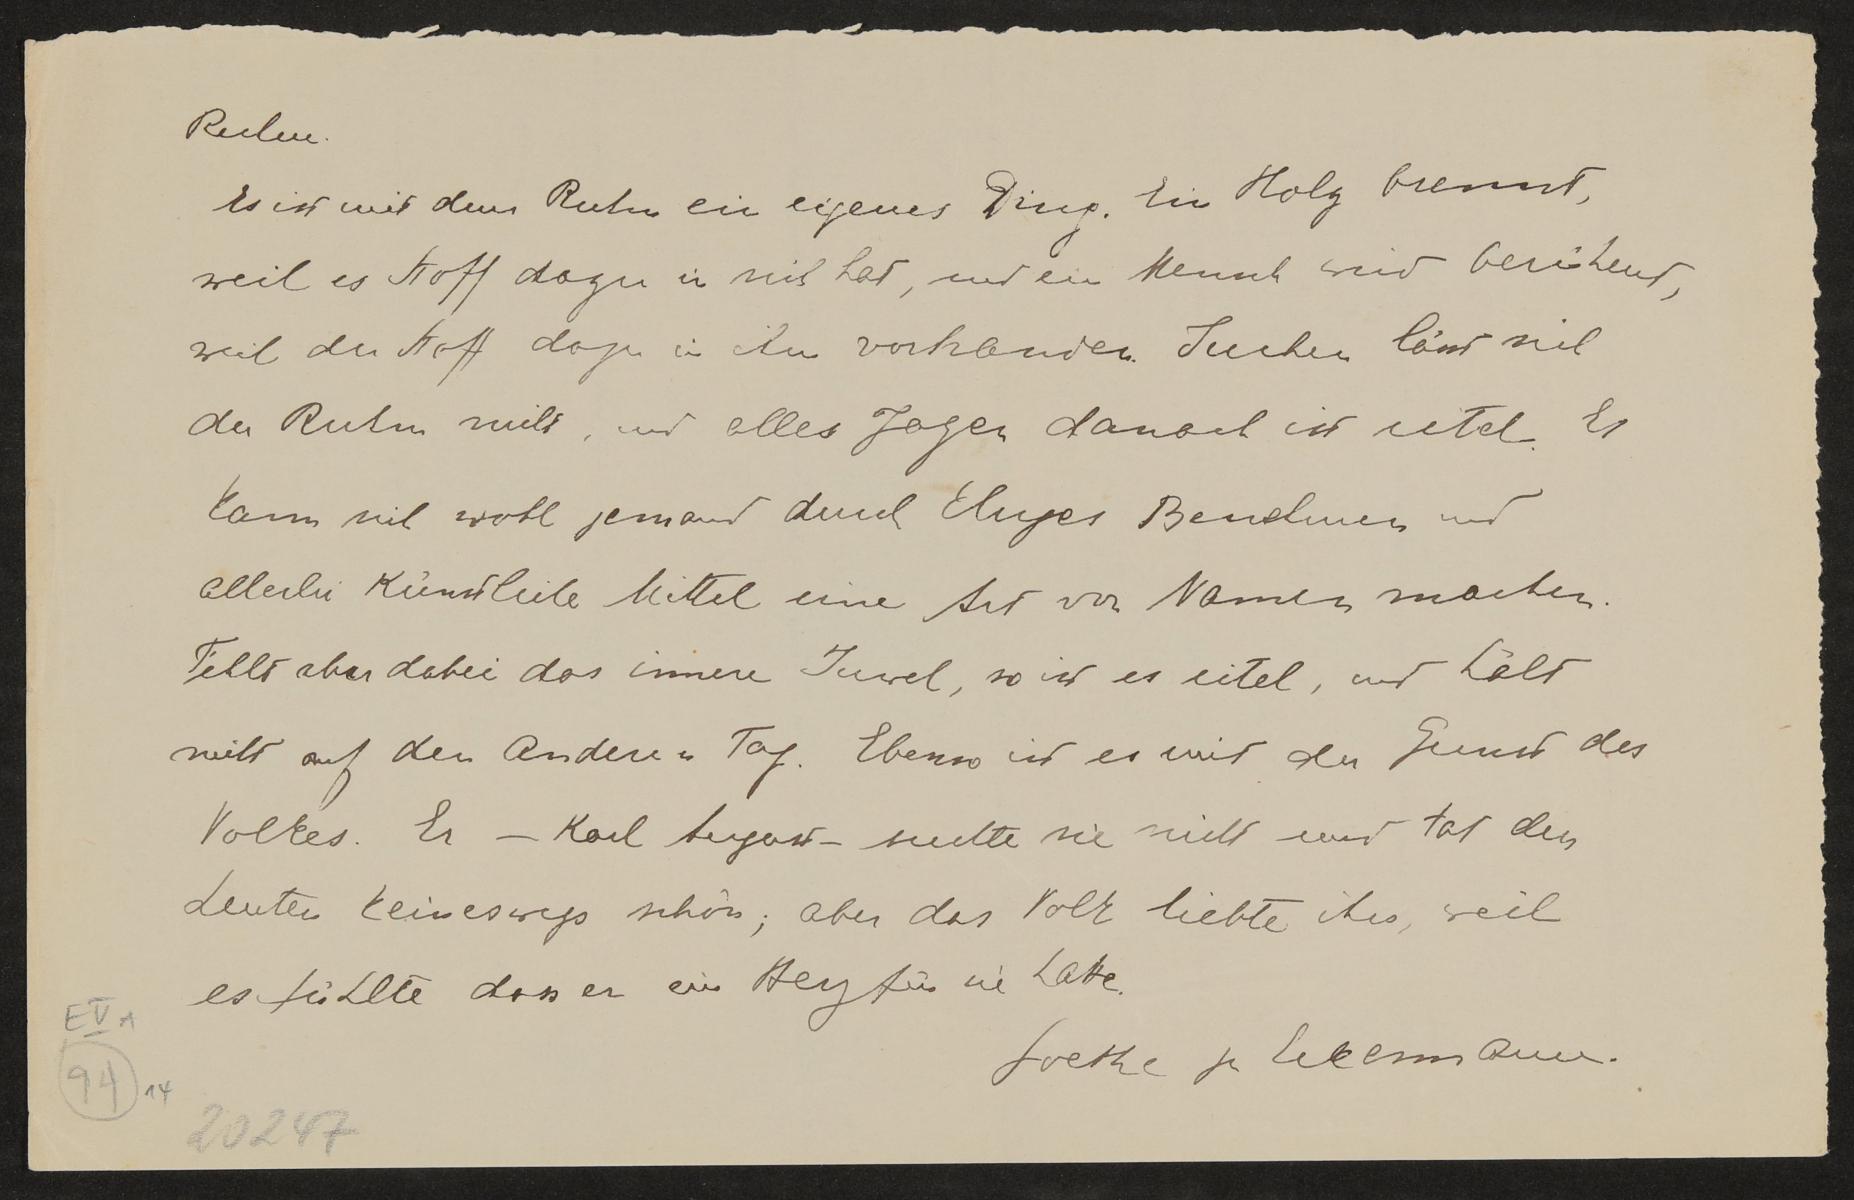 Ruhm.
Es ist mit dem Ruhm ein eigenes Ding. Ein Holz brennt,
weil es Stoff dazu in sich hat, und ein Mensch wird berühmt,
weil der Stoff dazu in ihm vorhanden. Suchen lässt sich
der Ruhm nicht, und alles Jagen danach ist eitel. Es
kann sich wohl jemand durch kluges Benehmen und
allerlei künstliche Mittel eine Art von Namen machen.
Fehlt aber dabei das innere Juwel, so ist es eitel, und hält
nicht auf den anderen Tag. Ebenso ist es mit der Gunst des
Volkes. Er – Karl August – suchte sie nicht und tat den
Leuten keineswegs schön; aber das Volk liebte ihn, weil
es fühlte dass er ein Herz für sie hatte.
Goethe zu Eckermann.
E V A
94 14
20247